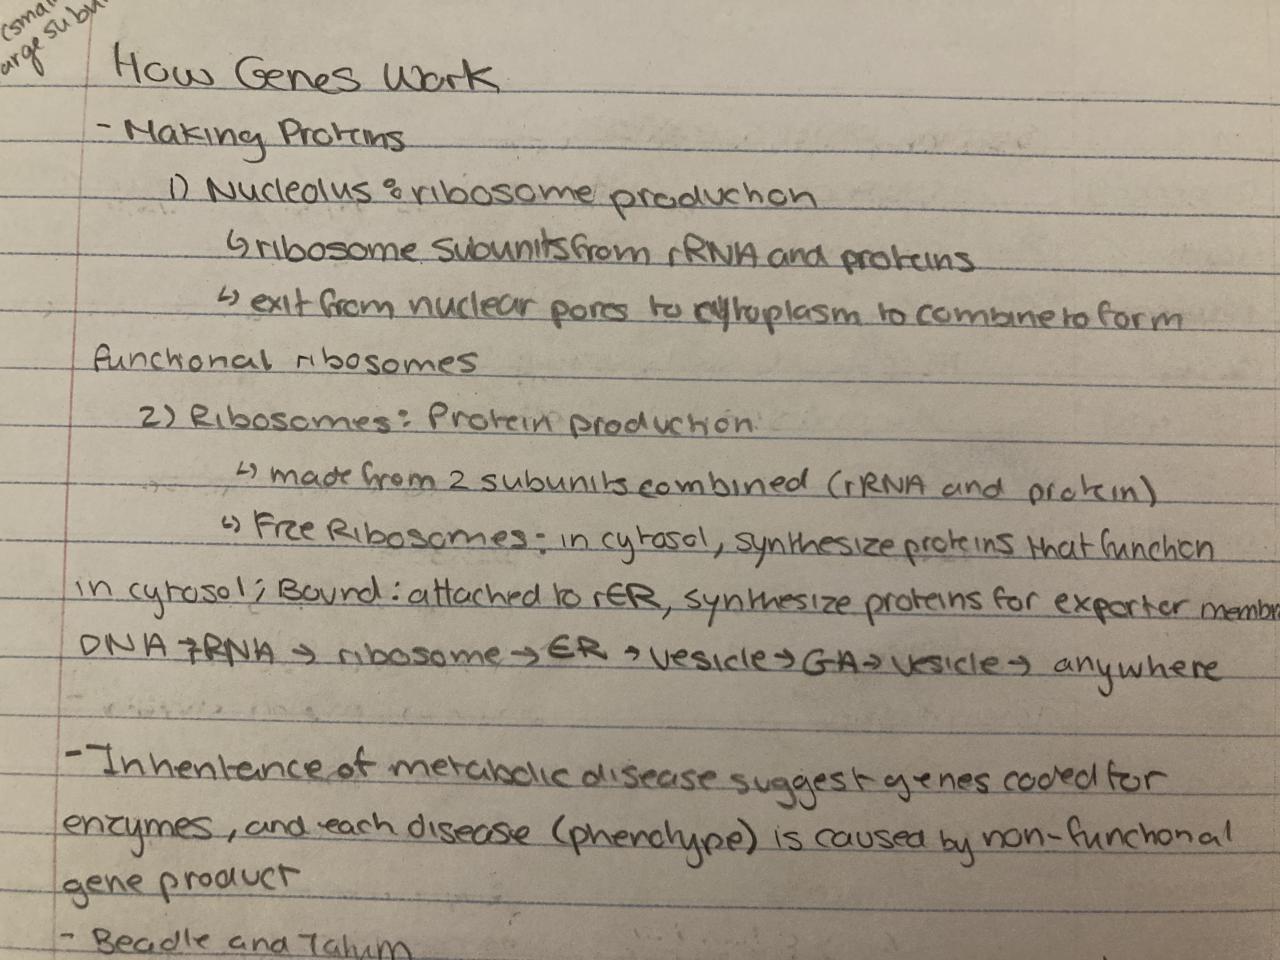 (smal
arge subu
How Genes Work
- Making Proteins
1) Nucleolus: ribosome production
↳ ribosome subunits from rRNA and proteins
↳ exit from nuclear pores to cytoplasm to combine to form
functional ribosomes
2) Ribosomes: Protein production
↳ made from 2 subunits combined (rRNA and protein)
↳ Free Ribosomes: in cytosol, synthesize proteins that function
in cytosol; Bound: attached to rER, synthesize proteins for export or membr
DNA → RNA → ribosome → ER → vesicle → GA → vesicle → anywhere
- Inheritance of metabolic disease suggest genes coded for
enzymes, and each disease (phenotype) is caused by non-functional
gene product
- Beadle and Tatum